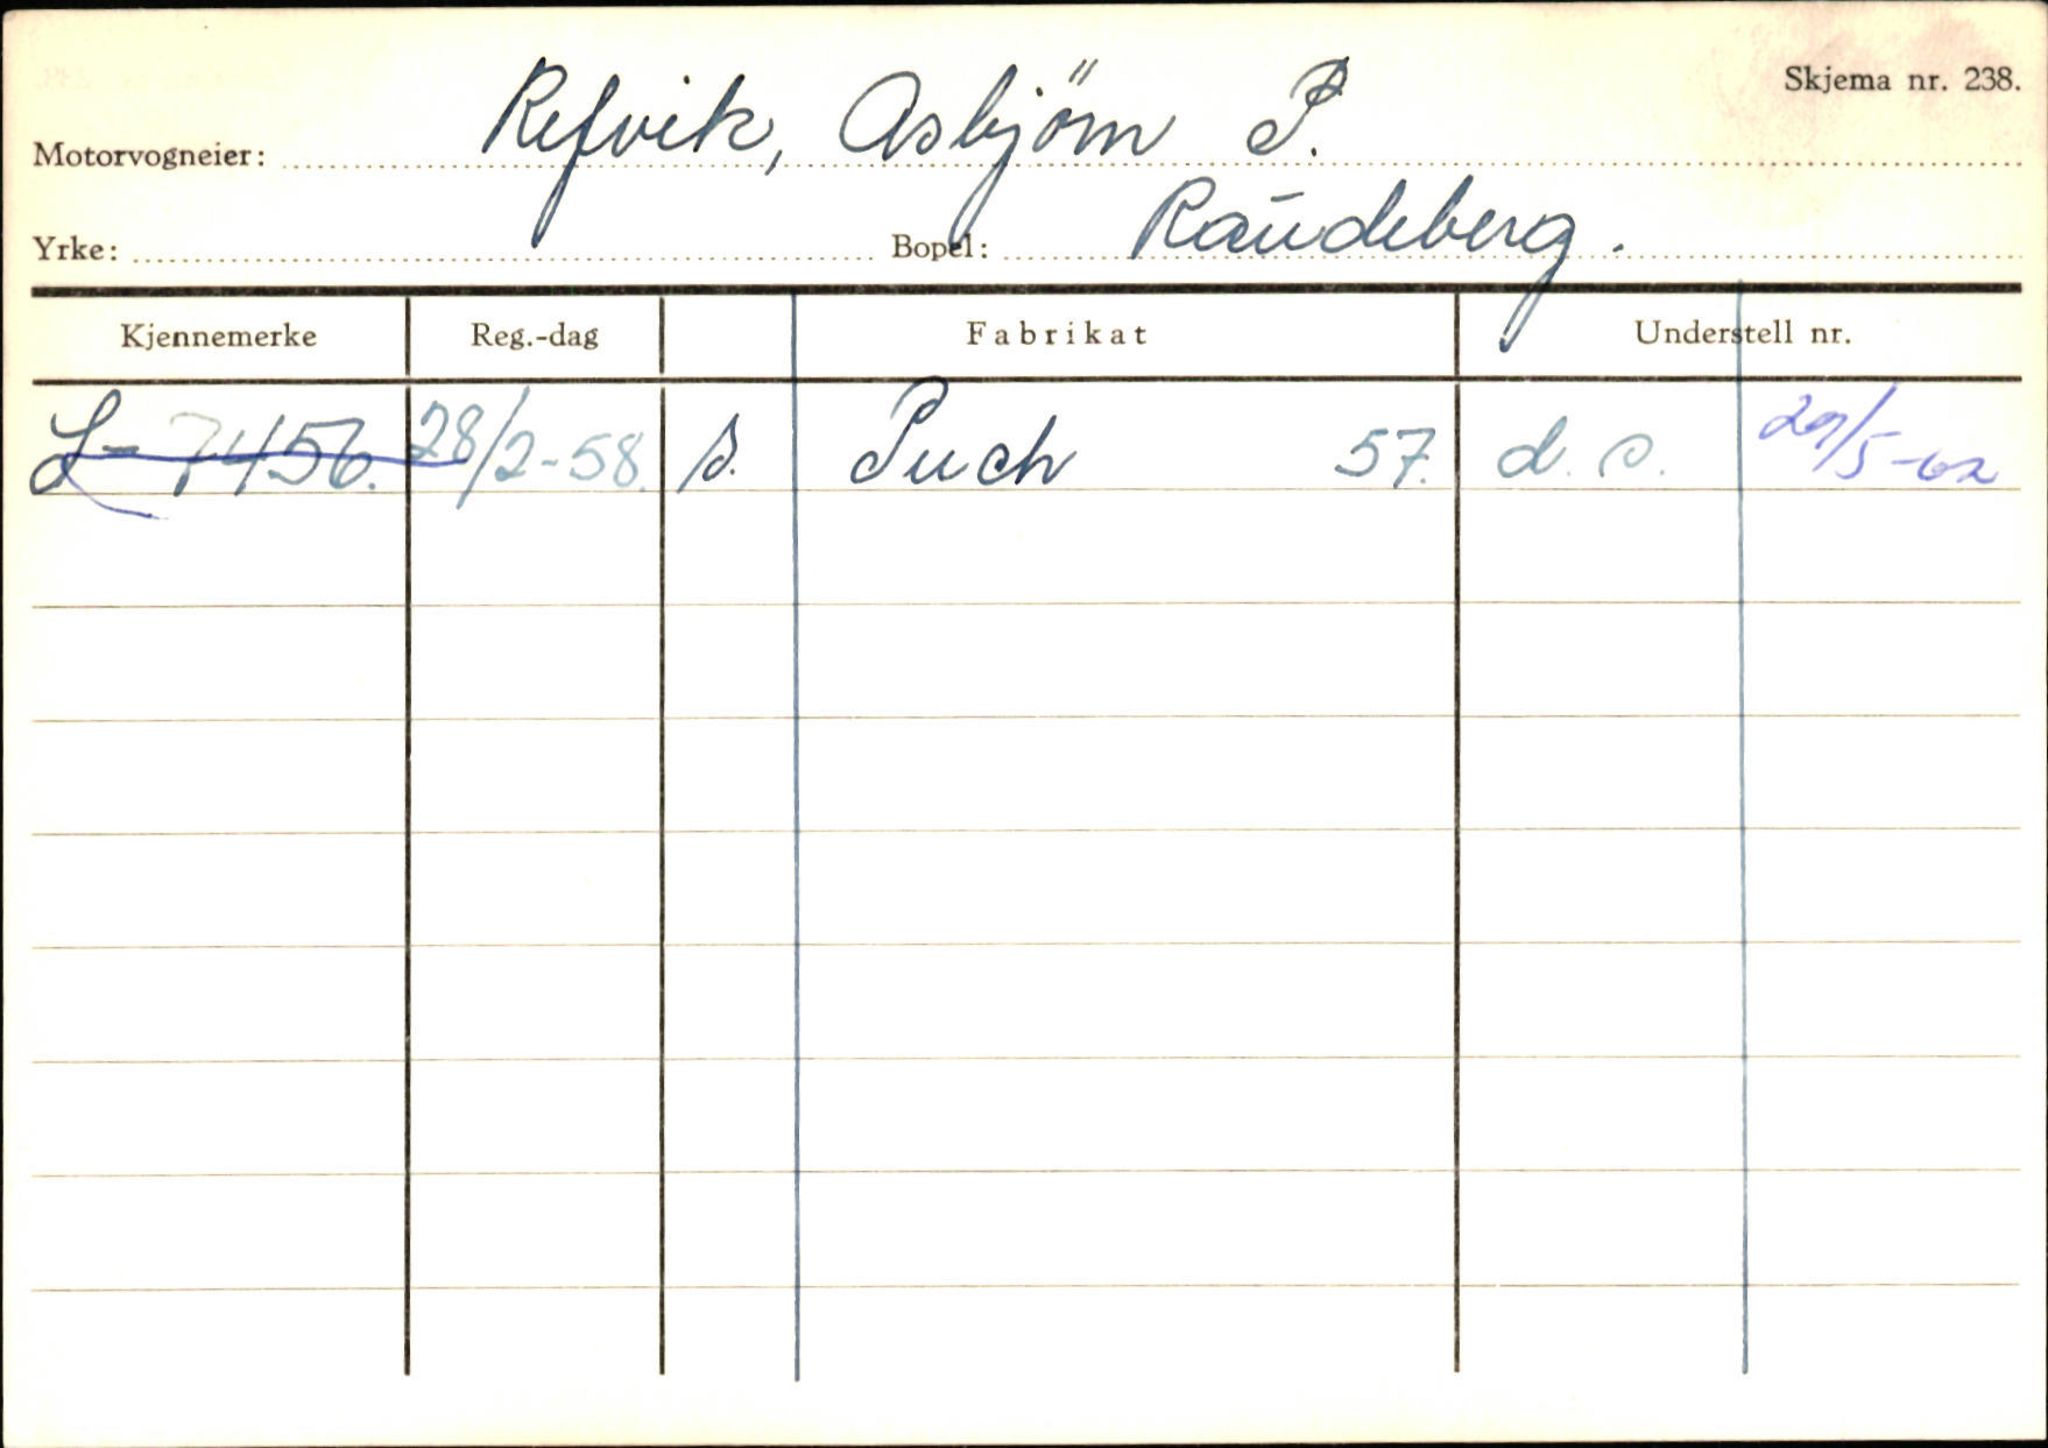 Skjema nr. 238.
Motorvogneier: Refvik, Asbjörn P.
Yrke: Bopel: Raudeberg.
Kjennemerke Reg.-dag Fabrikat Understell nr.
L-7456. 28/2-58. s. Puch 57. d. s. 29/5-62